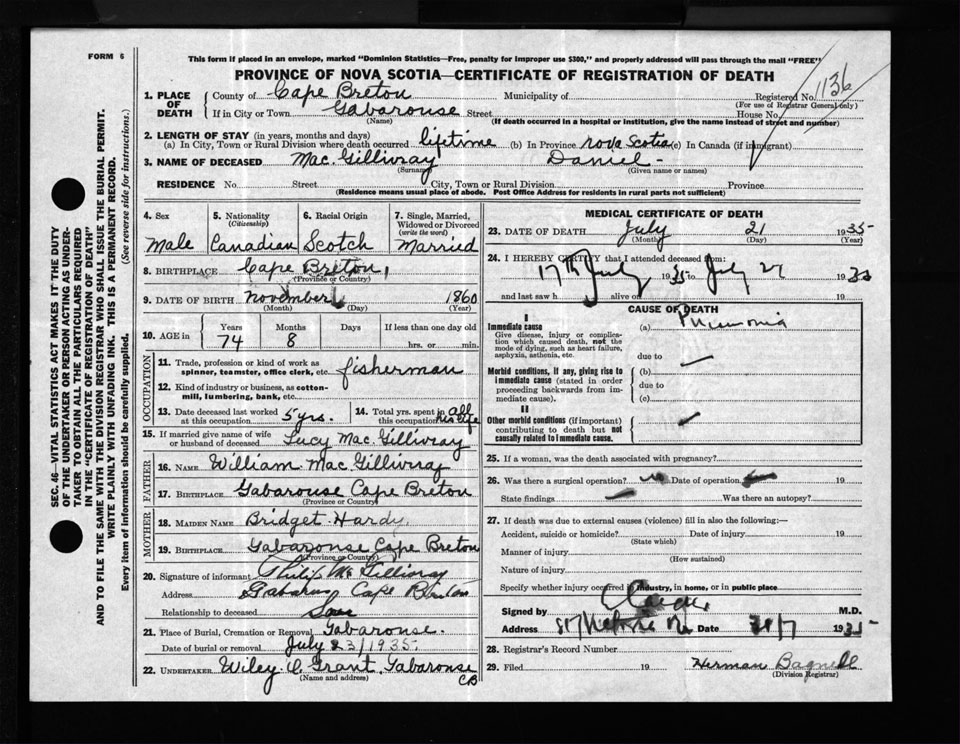 FORM 6
This form if placed in an envelope, marked "Dominion Statistics—Free, penalty for improper use $300," and properly addressed will pass through the mail "FREE"
PROVINCE OF NOVA SCOTIA—CERTIFICATE OF REGISTRATION OF DEATH
1. PLACE OF DEATH County of Cape Breton Municipality of Registered No. 1136
(For use of Registrar General only)
If in City or Town Gabarouse Street House No.
(Name) (If death occurred in a hospital or institution, give the name instead of street and number)
2. LENGTH OF STAY (in years, months and days)
(a) In City, Town or Rural Division where death occurred lifetime (b) In Province nova Scotia (c) In Canada (if immigrant)
3. NAME OF DECEASED Mac. Gillivray Daniel -
(Surname) (Given name or names)
RESIDENCE No. Street City, Town or Rural Division Province
(Residence means usual place of abode. Post Office Address for residents in rural parts not sufficient)
4. Sex Male
5. Nationality (Citizenship) Canadian
6. Racial Origin Scotch
7. Single, Married, Widowed or Divorced (write the word) Married
8. BIRTHPLACE Cape Breton,
(Province or Country)
9. DATE OF BIRTH november 1860
(Month) (Day) (Year)
10. AGE in Years 74 Months 8 Days If less than one day old hrs. or min.
OCCUPATION
11. Trade, profession or kind of work as spinner, teamster, office clerk, etc. fisherman
12. Kind of industry or business, as cotton-mill, lumbering, bank, etc.
13. Date deceased last worked at this occupation 5 yrs.
14. Total yrs. spent in this occupation all his life
15. If married give name of wife or husband of deceased Lucy Mac. Gillivray
FATHER
16. NAME William Mac. Gillivray
17. BIRTHPLACE Gabarouse Cape Breton
(Province or Country)
MOTHER
18. MAIDEN NAME Bridget Hardy
19. BIRTHPLACE Gabarouse Cape Breton
(Province or Country)
20. Signature of informant Philip Mc Gillivray
Address Cape Breton
Relationship to deceased Son
21. Place of Burial, Cremation or Removal Gabarouse.
Date of burial or removal July 23/1935.
22. UNDERTAKER Wiley Grant, Gabarouse CB
(Name and address)
MEDICAL CERTIFICATE OF DEATH
23. DATE OF DEATH July 21 1935
(Month) (Day) (Year)
24. I HEREBY CERTIFY that I attended deceased from:
17th July 1935 to July 21 1935
and last saw h alive on 19
CAUSE OF DEATH
I
Immediate cause
Give disease, injury or complication which caused death, not the mode of dying, such as heart failure, asphyxia, asthenia, etc.
(a) Pneumonia
due to
Morbid conditions, if any, giving rise to immediate cause (stated in order proceeding backwards from immediate cause).
(b)
due to
(c)
II
Other morbid conditions (if important) contributing to death but not causally related to immediate cause.
25. If a woman, was the death associated with pregnancy?
26. Was there a surgical operation? no Date of operation 19
State findings Was there an autopsy?
27. If death was due to external causes (violence) fill in also the following:—
Accident, suicide or homicide? Date of injury 19
(State which)
Manner of injury
(How sustained)
Nature of injury
Specify whether injury occurred in industry, in home, or in public place
Signed by M.D.
Address Date 1935
28. Registrar's Record Number
29. Filed 19 Herman Bagnell
(Division Registrar)
SEC. 46—VITAL STATISTICS ACT MAKES IT THE DUTY
OF THE UNDERTAKER OR PERSON ACTING AS UNDER-
TAKER TO OBTAIN ALL THE PARTICULARS REQUIRED
IN THE "CERTIFICATE OF REGISTRATION OF DEATH"
AND TO FILE THE SAME WITH THE DIVISION REGISTRAR WHO SHALL ISSUE THE BURIAL PERMIT.
WRITE PLAINLY WITH UNFADING INK. THIS IS A PERMANENT RECORD.
Every item of information should be carefully supplied. (See reverse side for instructions.)